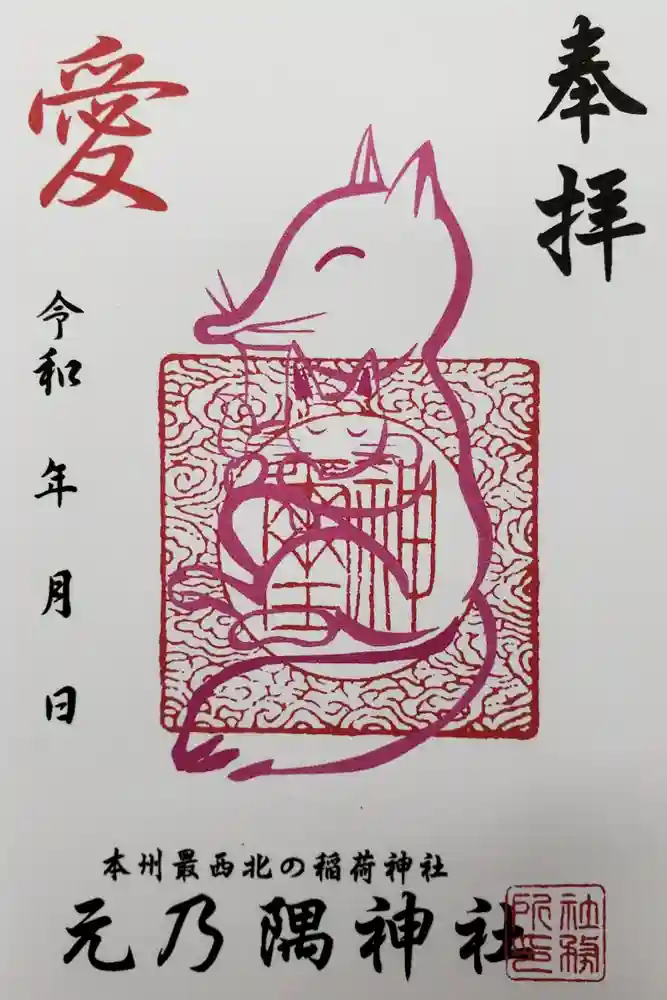 奉拝
愛
令和 年 月 日
本州最西北の稲荷神社
元乃隅神社
社務所印